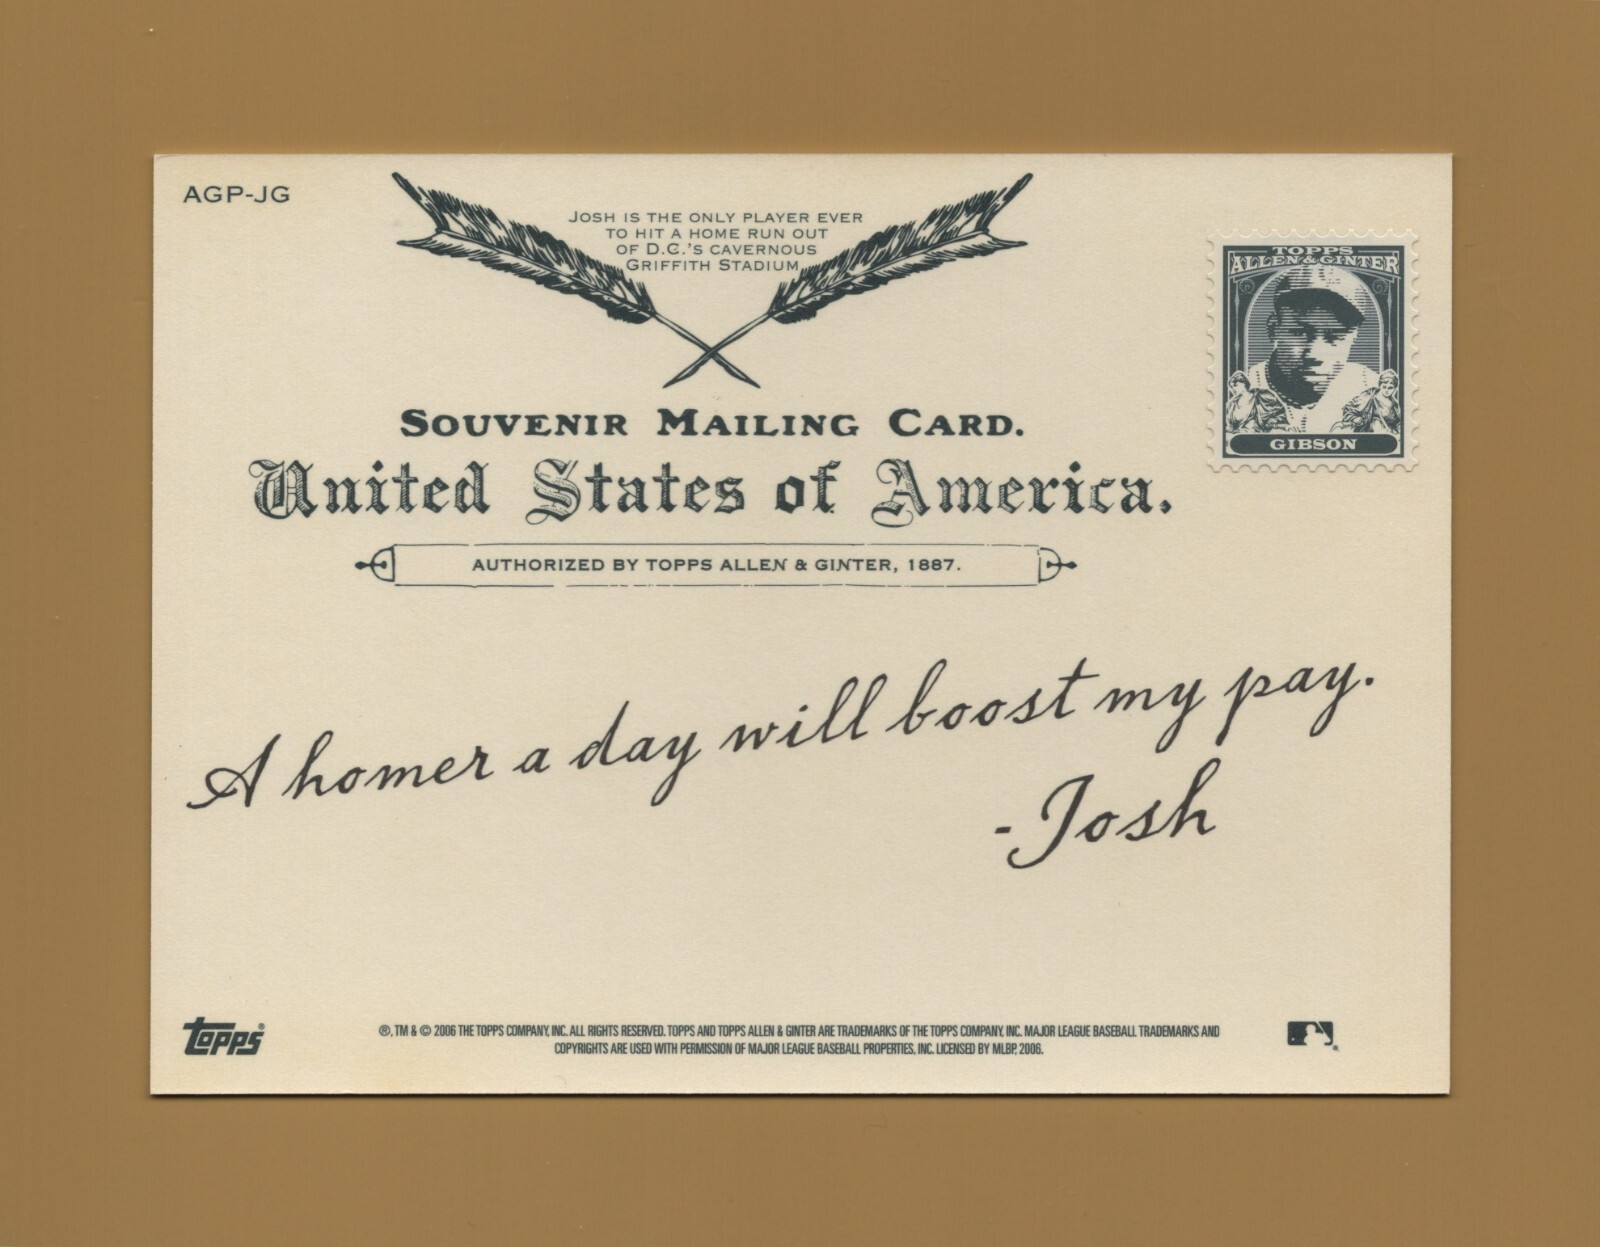 AGP-JG
JOSH IS THE ONLY PLAYER EVER
TO HIT A HOME RUN OUT
OF D.C.'S CAVERNOUS
GRIFFITH STADIUM
TOPPS
ALLEN & GINTER
GIBSON
SOUVENIR MAILING CARD.
United States of America.
AUTHORIZED BY TOPPS ALLEN & GINTER, 1887.
A homer a day will boost my pay.
-Josh
topps®
®, TM & © 2006 THE TOPPS COMPANY, INC. ALL RIGHTS RESERVED. TOPPS AND TOPPS ALLEN & GINTER ARE TRADEMARKS OF THE TOPPS COMPANY, INC. MAJOR LEAGUE BASEBALL TRADEMARKS AND
COPYRIGHTS ARE USED WITH PERMISSION OF MAJOR LEAGUE BASEBALL PROPERTIES, INC. LICENSED BY MLBP, 2006.